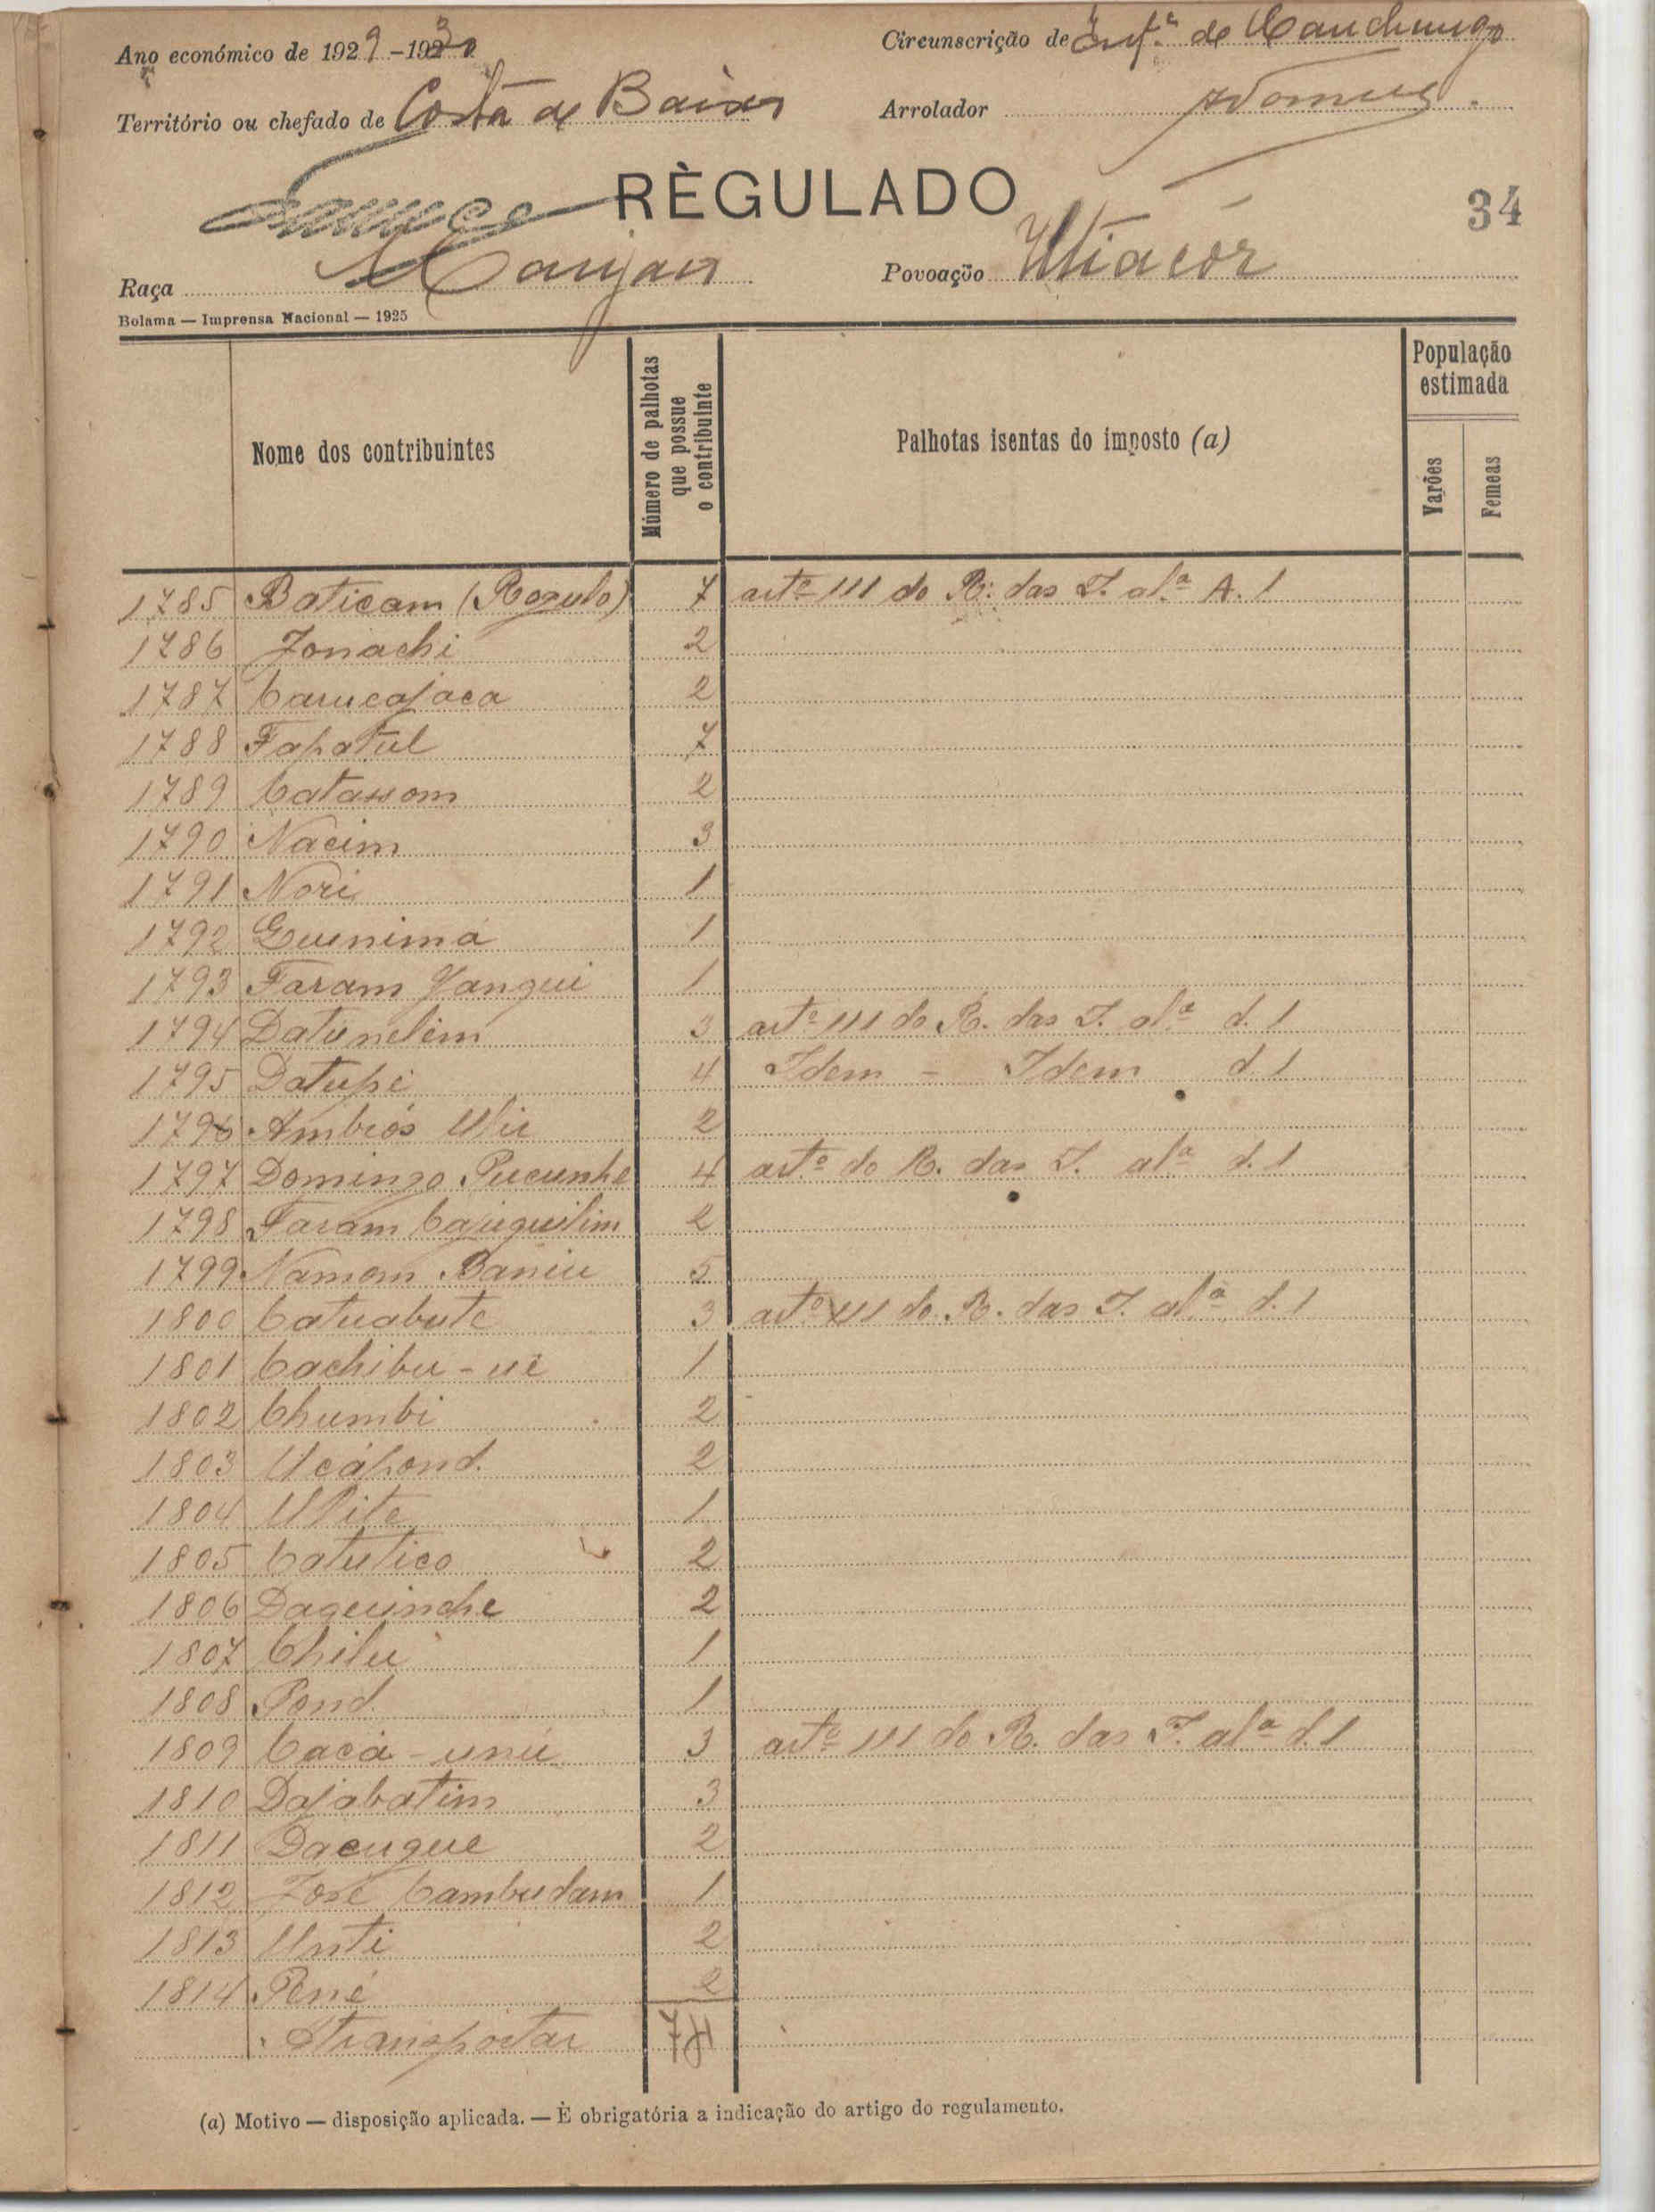 Ano económico de 1929-1930
Circunscrição de Int.ª de Canchungo
Território ou chefado de Costa de Baixo
Arrolador
RÈGULADO
34
Raça Manjaco
Povoação Utiacor
Bolama — Imprensa Nacional — 1925
Nome dos contribuintes
Número de palhotas que possue o contribuinte
Palhotas isentas do imposto (a)
População estimada
Varões
Femeas
1785 Baticam (Regulo) 7 artº 111 do R. das I. alª A. 1
1786 Jonachi 2
1787 Carucajaca 2
1788 Fapatul 7
1789 Catassom 2
1790 Nacim 3
1791 Nori 1
1792 Guenimá 1
1793 Faram Jangui 1
1794 Datinelim 3 artº 111 do R. das I. alª d. 1
1795 Datupé 4 Idem - Idem d. 1
1796 Ambrós 2
1797 Domingo Pucunhe 4 artº do R. das I. alª d. 1
1798 Faram Cajuguilim 2
1799 Namom Baniu 5
1800 Catuabute 3 artº 111 do R. das I. alª d. 1
1801 Cachibu-ué 1
1802 Chumbi 2
1803 Ucápond. 2
1804 Ulite 1
1805 Catutico 2
1806 Daguinche 2
1807 Chilu 1
1808 Pond. 1
1809 Cacá-unú 3 artº 111 do R. das I. alª d. 1
1810 Dajabatim 3
1811 Dacugue 2
1812 José Cambudam 1
1813 Unti 2
1814 Pené 2
A transportar 74
(a) Motivo — disposição aplicada. — È obrigatória a indicação do artigo do regulamento.